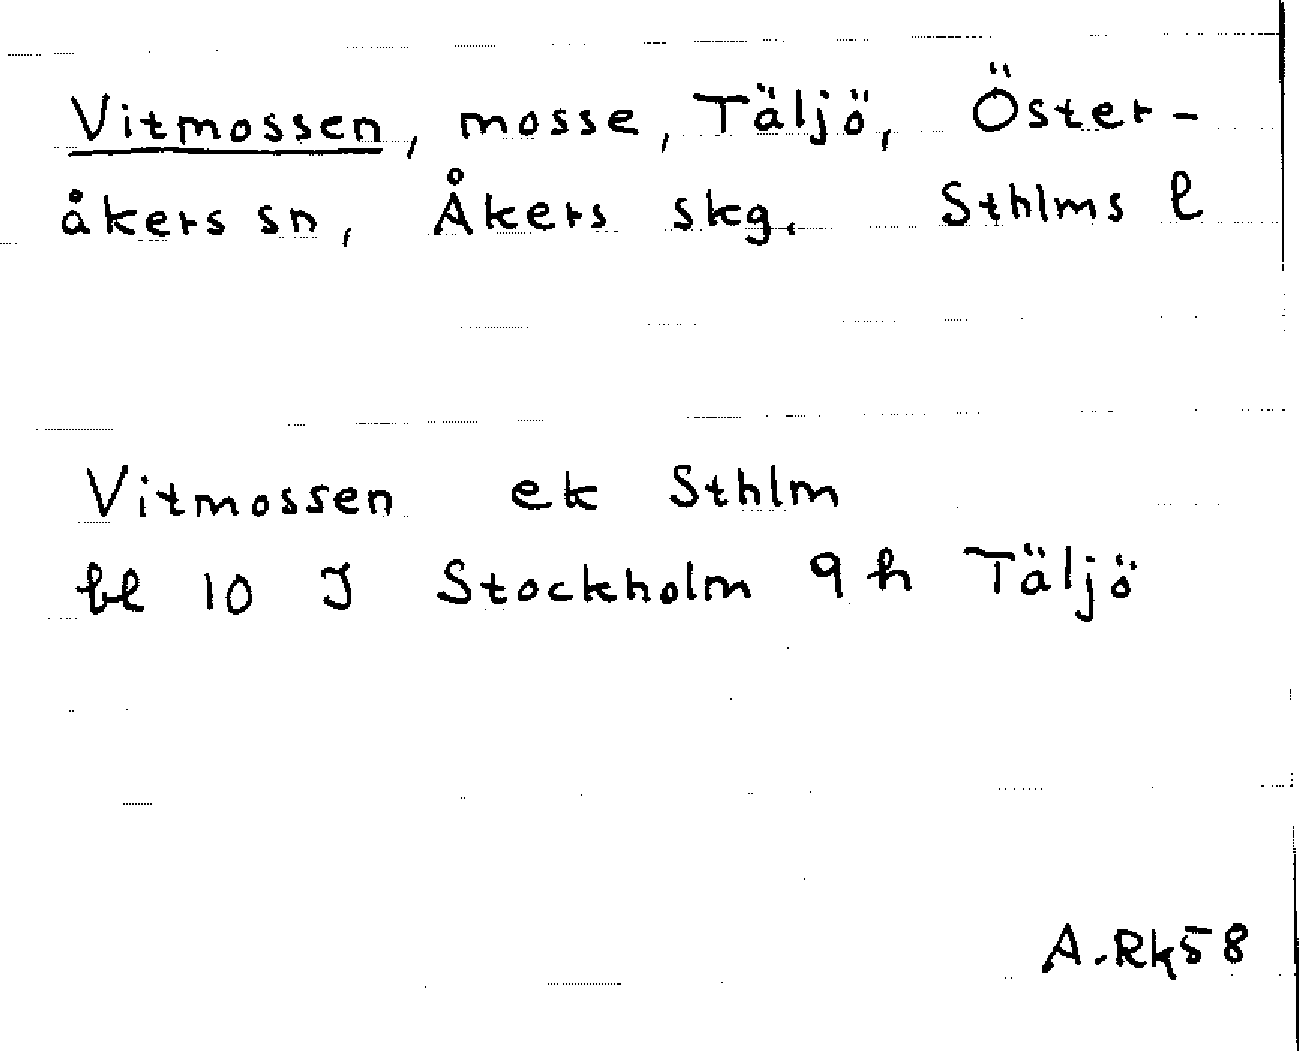 Vitmossen, mosse, Täljö, Öster-
åkers sn, Åkers skg. Sthlms l
Vitmossen ek Sthlm
bl 10 I Stockholm 9 h Täljö
A.Rk58